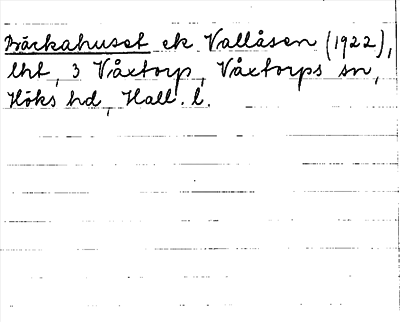 Bäckahuset ek Vallåsen (1922),
lht, 3 Våxtorp, Våxtorps sn,
Höks hd, Hall. l.